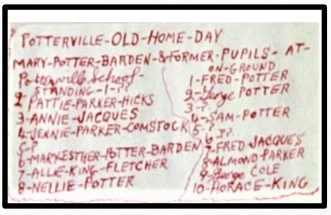 POTTERVILLE-OLD-HOME-DAY
MARY-POTTER-BARDEN & FORMER-PUPILS-AT-
Potterville School-
STANDING-1-??
2-PATTIE-PARKER-HICKS
3-ANNIE-JACQUES
4-JENNIE-PARKER-COMSTOCK
5-?
6-MARY-ESTHER-POTTER-BARDEN
7-ALLIE-KING-FLETCHER
8-NELLIE-POTTER
ON-GROUND
1-FRED-POTTER
2-George POTTER
3-?
4-SAM-POTTER
5-?
6-??
7-FRED JACQUES
8-ALMOND PARKER
9-George COLE
10-HORACE-KING